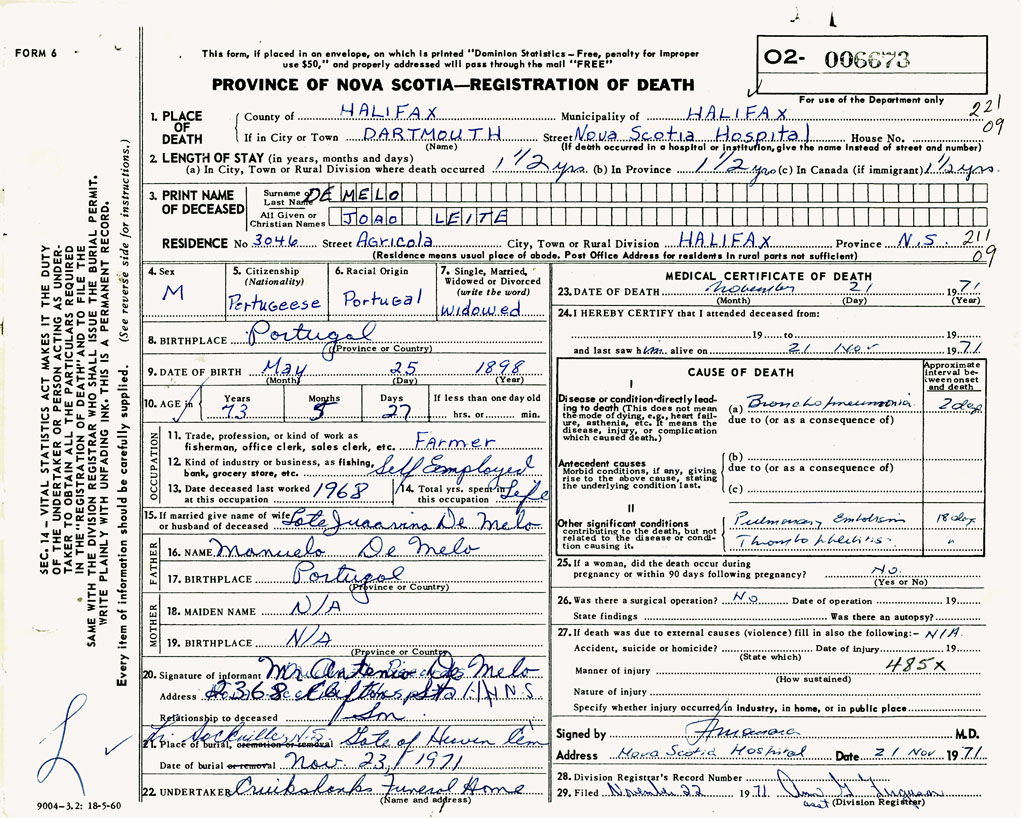 FORM 6
This form, if placed in an envelope, on which is printed "Dominion Statistics – Free, penalty for improper
use $50," and properly addressed will pass through the mail "FREE"
O2- 006673
PROVINCE OF NOVA SCOTIA—REGISTRATION OF DEATH
For use of the Department only
221
09
1. PLACE OF DEATH
County of HALIFAX Municipality of HALIFAX
If in City or Town DARTMOUTH Street Nova Scotia Hospital House No.
(Name) (If death occurred in a hospital or institution, give the name instead of street and number)
2. LENGTH OF STAY (in years, months and days)
(a) In City, Town or Rural Division where death occurred 1 1/2 yrs. (b) In Province 1 1/2 yrs (c) In Canada (if immigrant) 1 1/2 yrs.
3. PRINT NAME OF DECEASED
Surname or Last Name DE MELO
All Given or Christian Names JOAO LEITE
RESIDENCE No 3046 Street Agricola City, Town or Rural Division HALIFAX Province N.S. 211
(Residence means usual place of abode. Post Office Address for residents in rural parts not sufficient) 09
4. Sex
M
5. Citizenship
(Nationality)
Portugeese
6. Racial Origin
Portugal
7. Single, Married, Widowed or Divorced
(write the word)
Widowed
8. BIRTHPLACE Portugal
(Province or Country)
9. DATE OF BIRTH May 25 1898
(Month) (Day) (Year)
10. AGE in Years Months Days If less than one day old
73 5 27 hrs. or min.
OCCUPATION
11. Trade, profession, or kind of work as
fisherman, office clerk, sales clerk, etc. Farmer
12. Kind of industry or business, as fishing,
bank, grocery store, etc. Self Employed
13. Date deceased last worked
at this occupation 1968
14. Total yrs. spent in
this occupation Life
15. If married give name of wife
or husband of deceased De Melo
FATHER
16. NAME Manuelo De Melo
17. BIRTHPLACE Portugal
(Province or Country)
MOTHER
18. MAIDEN NAME N/A
19. BIRTHPLACE N/A
(Province or Country)
20. Signature of informant Mr Antonio De Melo
Address 2368 Clifton St Hfx N.S.
Relationship to deceased Son
21. Place of burial, cremation or removal Sackville N.S. Gate of Heaven Cem
Date of burial or removal Nov. 23/1971
22. UNDERTAKER Cruikshanks Funeral Home
(Name and address)
MEDICAL CERTIFICATE OF DEATH
23. DATE OF DEATH November 21 1971
(Month) (Day) (Year)
24. I HEREBY CERTIFY that I attended deceased from:
19 to 19
and last saw him alive on 21 Nov 1971.
CAUSE OF DEATH
Approximate interval between onset and death
I
Disease or condition directly leading to death (This does not mean the mode of dying, e.g., heart failure, asthenia, etc. It means the disease, injury, or complication which caused death.)
(a) Bronchopneumonia 2 days
due to (or as a consequence of)
Antecedent causes
Morbid conditions, if any, giving rise to the above cause, stating the underlying condition last.
(b)
due to (or as a consequence of)
(c)
II
Other significant conditions
contributing to the death, but not related to the disease or condition causing it.
Pulmonary Embolism 18 days
Thrombophlebitis "
25. If a woman, did the death occur during
pregnancy or within 90 days following pregnancy? No.
(Yes or No)
26. Was there a surgical operation? No Date of operation 19
State findings Was there an autopsy?
27. If death was due to external causes (violence) fill in also the following:- N/A.
Accident, suicide or homicide? Date of injury 19
(State which)
Manner of injury 485X
(How sustained)
Nature of injury
Specify whether injury occurred in industry, in home, or in public place
Signed by M.D.
Address Nova Scotia Hospital Date 21 Nov. 1971.
28. Division Registrar's Record Number
29. Filed November 22 1971 Ann G Ferguson
asst (Division Registrar)
SEC. 14 – VITAL STATISTICS ACT MAKES IT THE DUTY
OF THE UNDERTAKER OR PERSON ACTING AS UNDER-
TAKER TO OBTAIN ALL THE PARTICULARS REQUIRED
IN THE "REGISTRATION OF DEATH" AND TO FILE THE
SAME WITH THE DIVISION REGISTRAR WHO SHALL ISSUE THE BURIAL PERMIT.
WRITE PLAINLY WITH UNFADING INK. THIS IS A PERMANENT RECORD.
Every item of information should be carefully supplied. (See reverse side for instructions.)
9004-3.2: 18-5-60